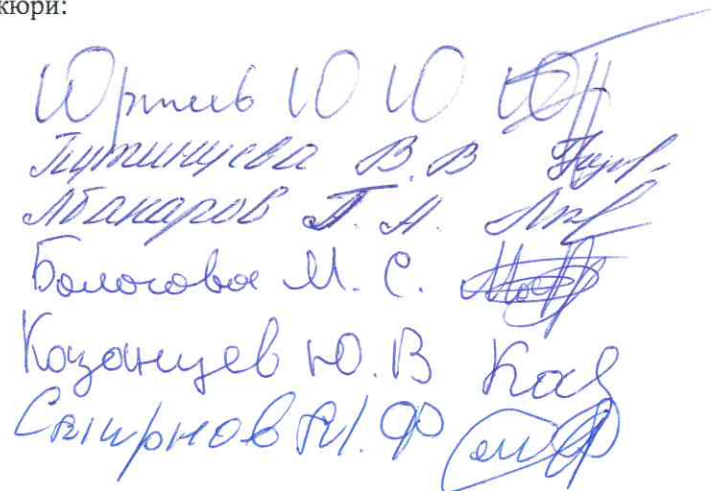 жюри:
Юртаев Ю Ю
Путинцева В. В
Абакаров Г. А.
Бологова М. С.
Казанцев Ю. В Каз
Смирнов М. Ф